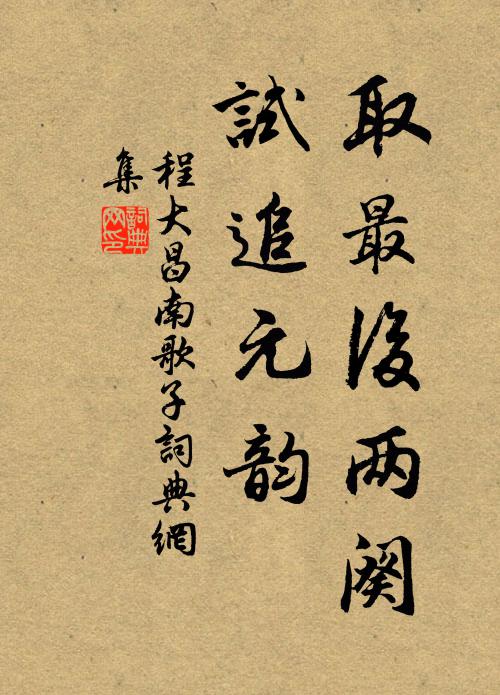 取最後两阕
試追元韵
程大昌南歌子詞典網
集
詞典
网印